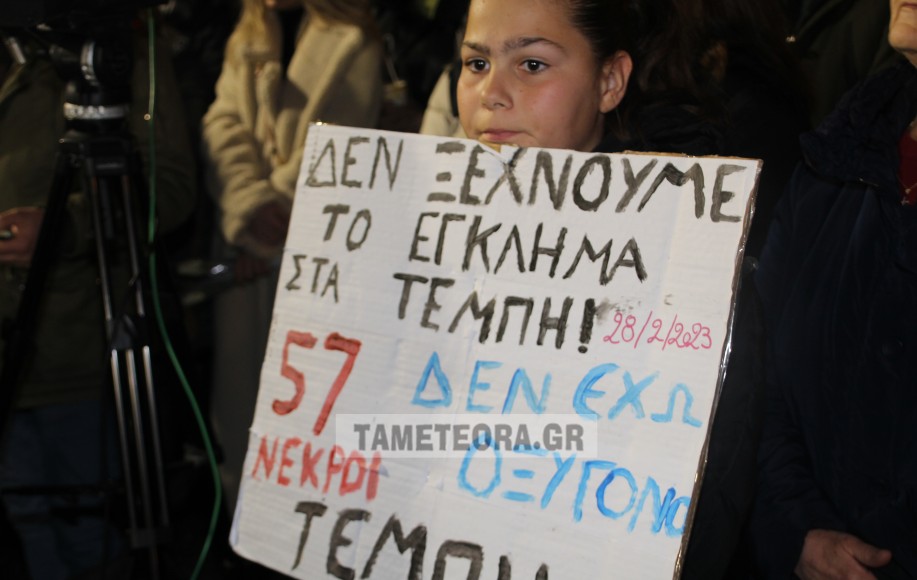 ΔΕΝ ΞΕΧΝΟΥΜΕ
ΤΟ ΕΓΚΛΗΜΑ
ΣΤΑ ΤΕΜΠΗ!
28/2/2023
57
ΝΕΚΡΟΙ
ΔΕΝ ΕΧΩ
ΟΞΥΓΟΝΟ
TAMETEORA.GR
ΤΕΜΠΗ